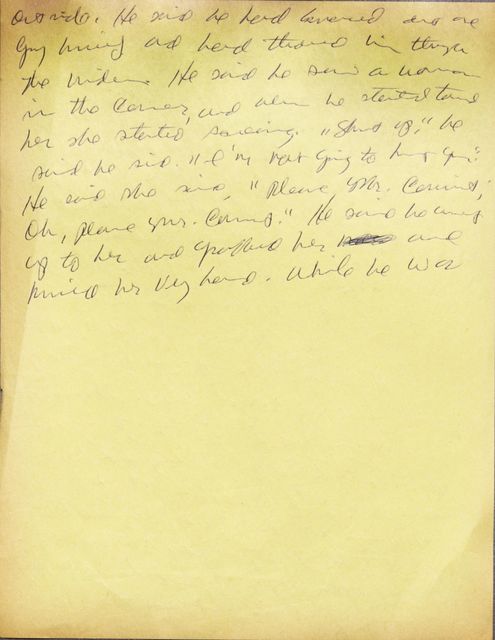 outside. He said he had and one
guy and had thrown him through
the window. He said he saw a woman
in the corner, and when he started toward
her she started screaming. "Shut up," he
said he said. "I'm not going to hurt you."
He said she said, "Please, Mr.
Oh, please Mr. ." He said he went
up to her and grabbed her and
her very hard. While he was